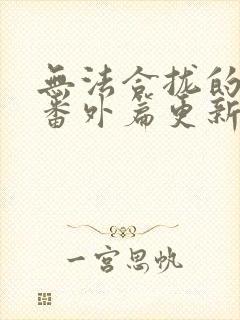 無法合拢的
番外篇更新
一宫思帆